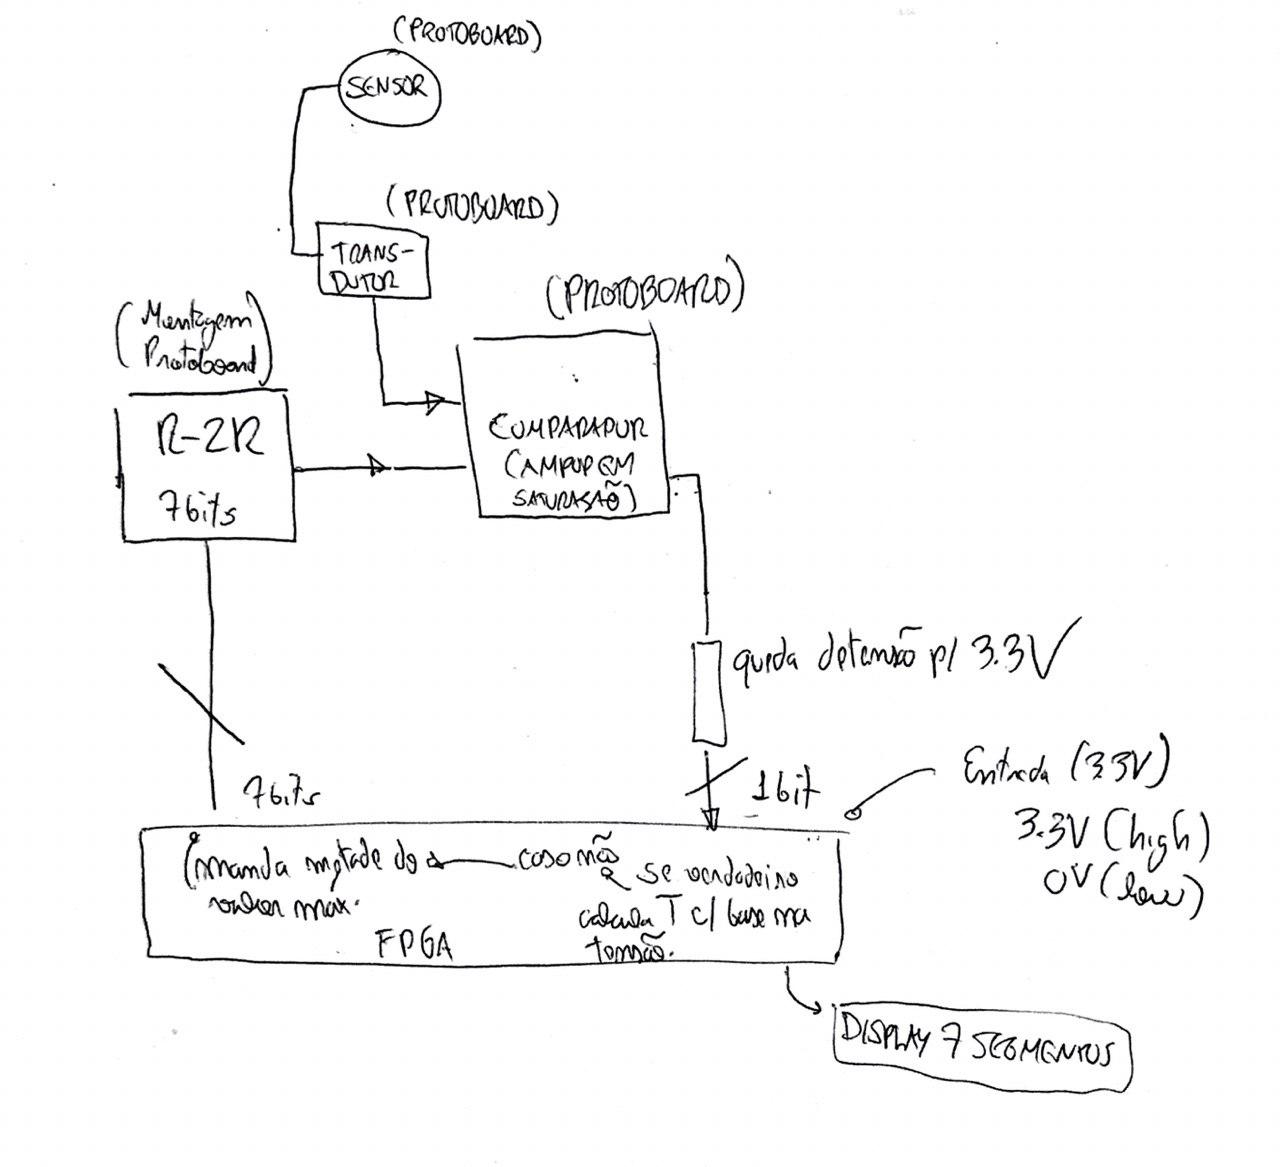 (PROTOBOARD)
SENSOR
(PROTOBOARD)
TRANS-
DUTOR
(PROTOBOARD)
(Montagem
Protoboard)
R-2R
7bits
COMPARADOR
(AMPOP EM
SATURASÃO)
queda detensão p/ 3.3V
7bits
1bit
Entrada (3.3V)
3.3V (high)
0V (low)
(manda metade do
valor max.
caso não
se verdadeiro
calcula T c/ base na
tensão.
FPGA
DISPLAY 7 SEGMENTOS